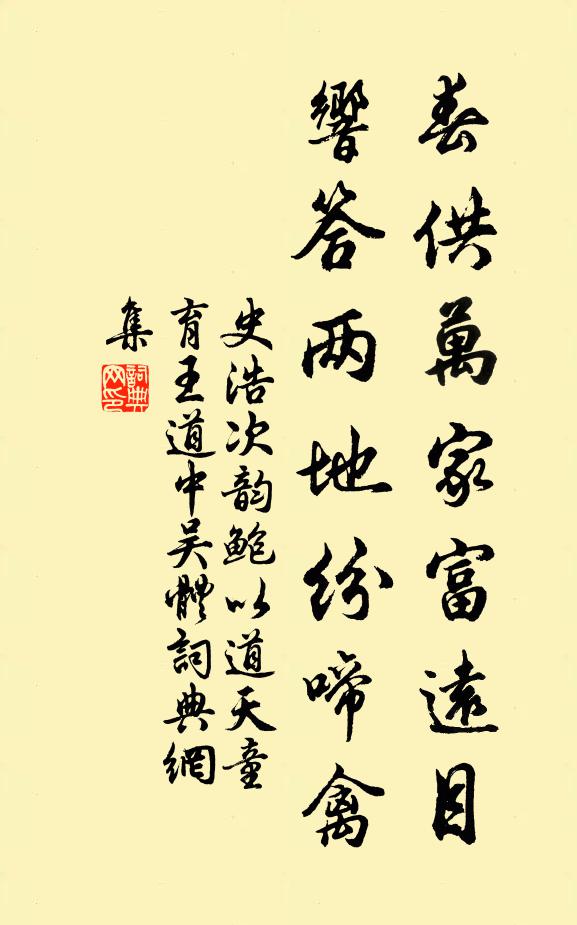 春供萬家富遠目
響答兩地紛啼禽
史浩次韵鮑以道天童
育王道中吴體詞典網
集
詞典網印